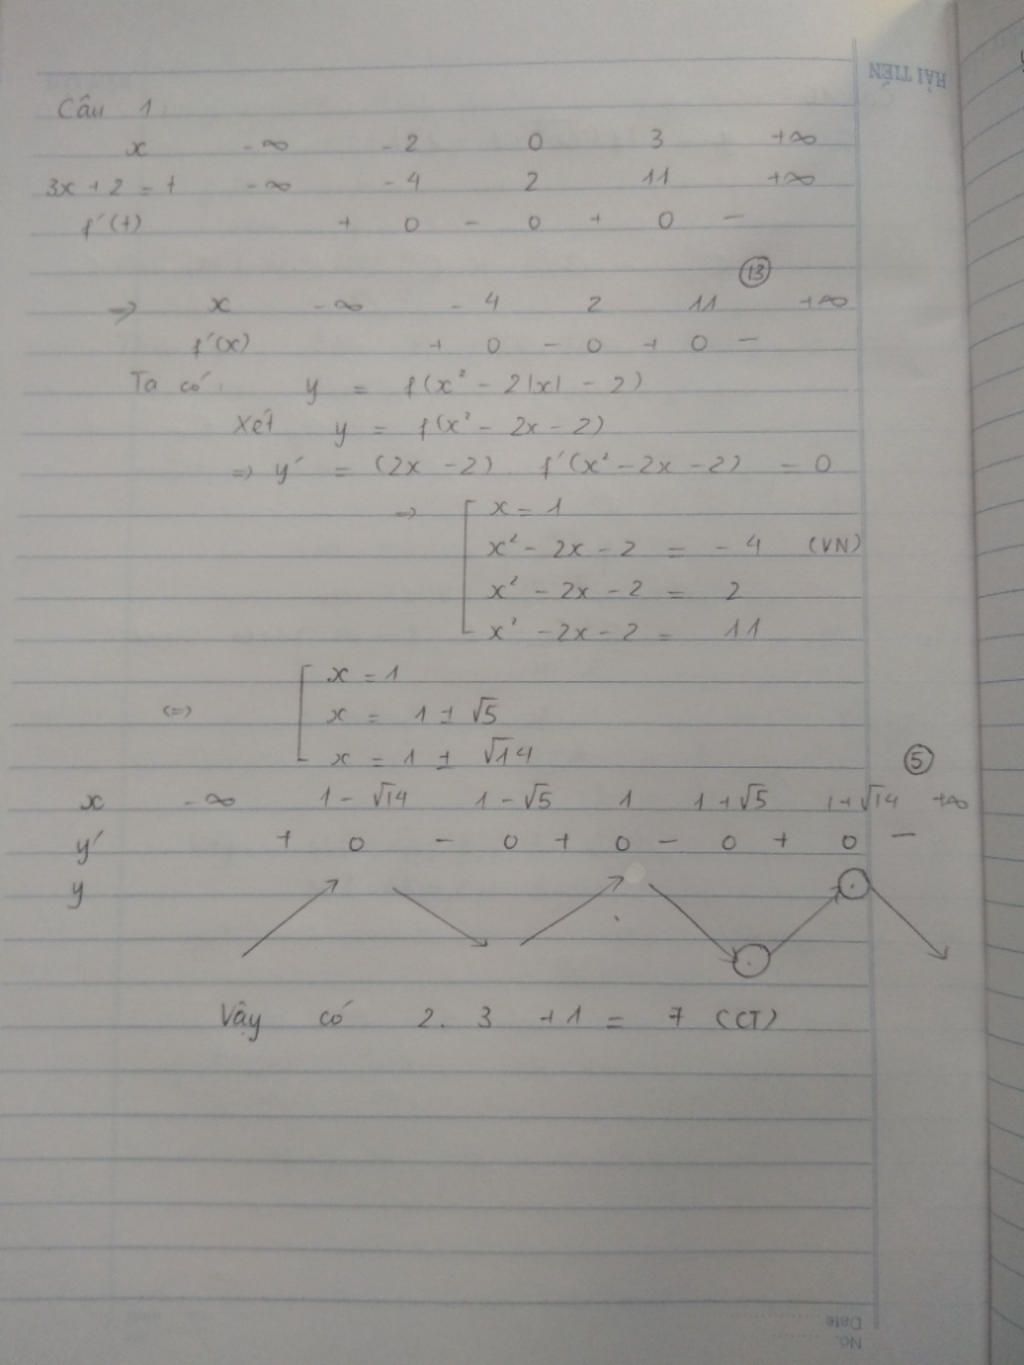 HẢI TIẾN
Câu 1
x -∞ -2 0 3 +∞
3x + 2 = t -∞ -4 2 11 +∞
f'(t) + 0 - 0 + 0 -
13
=> x -∞ -4 2 11 +∞
f'(x) + 0 - 0 + 0 -
Ta có: y = f(x² - 2|x| - 2)
Xét y = f(x² - 2x - 2)
=> y' = (2x - 2) . f'(x² - 2x - 2) = 0
=> [ x = 1
x² - 2x - 2 = -4 (VN)
x² - 2x - 2 = 2
x² - 2x - 2 = 11
(=) [ x = 1
x = 1 ± √5
x = 1 ± √14
5
x -∞ 1 - √14 1 - √5 1 1 + √5 1 + √14 +∞
y' + 0 - 0 + 0 - 0 + 0 -
y
Vậy có 2. 3 + 1 = 7 (CT)
Date
No.